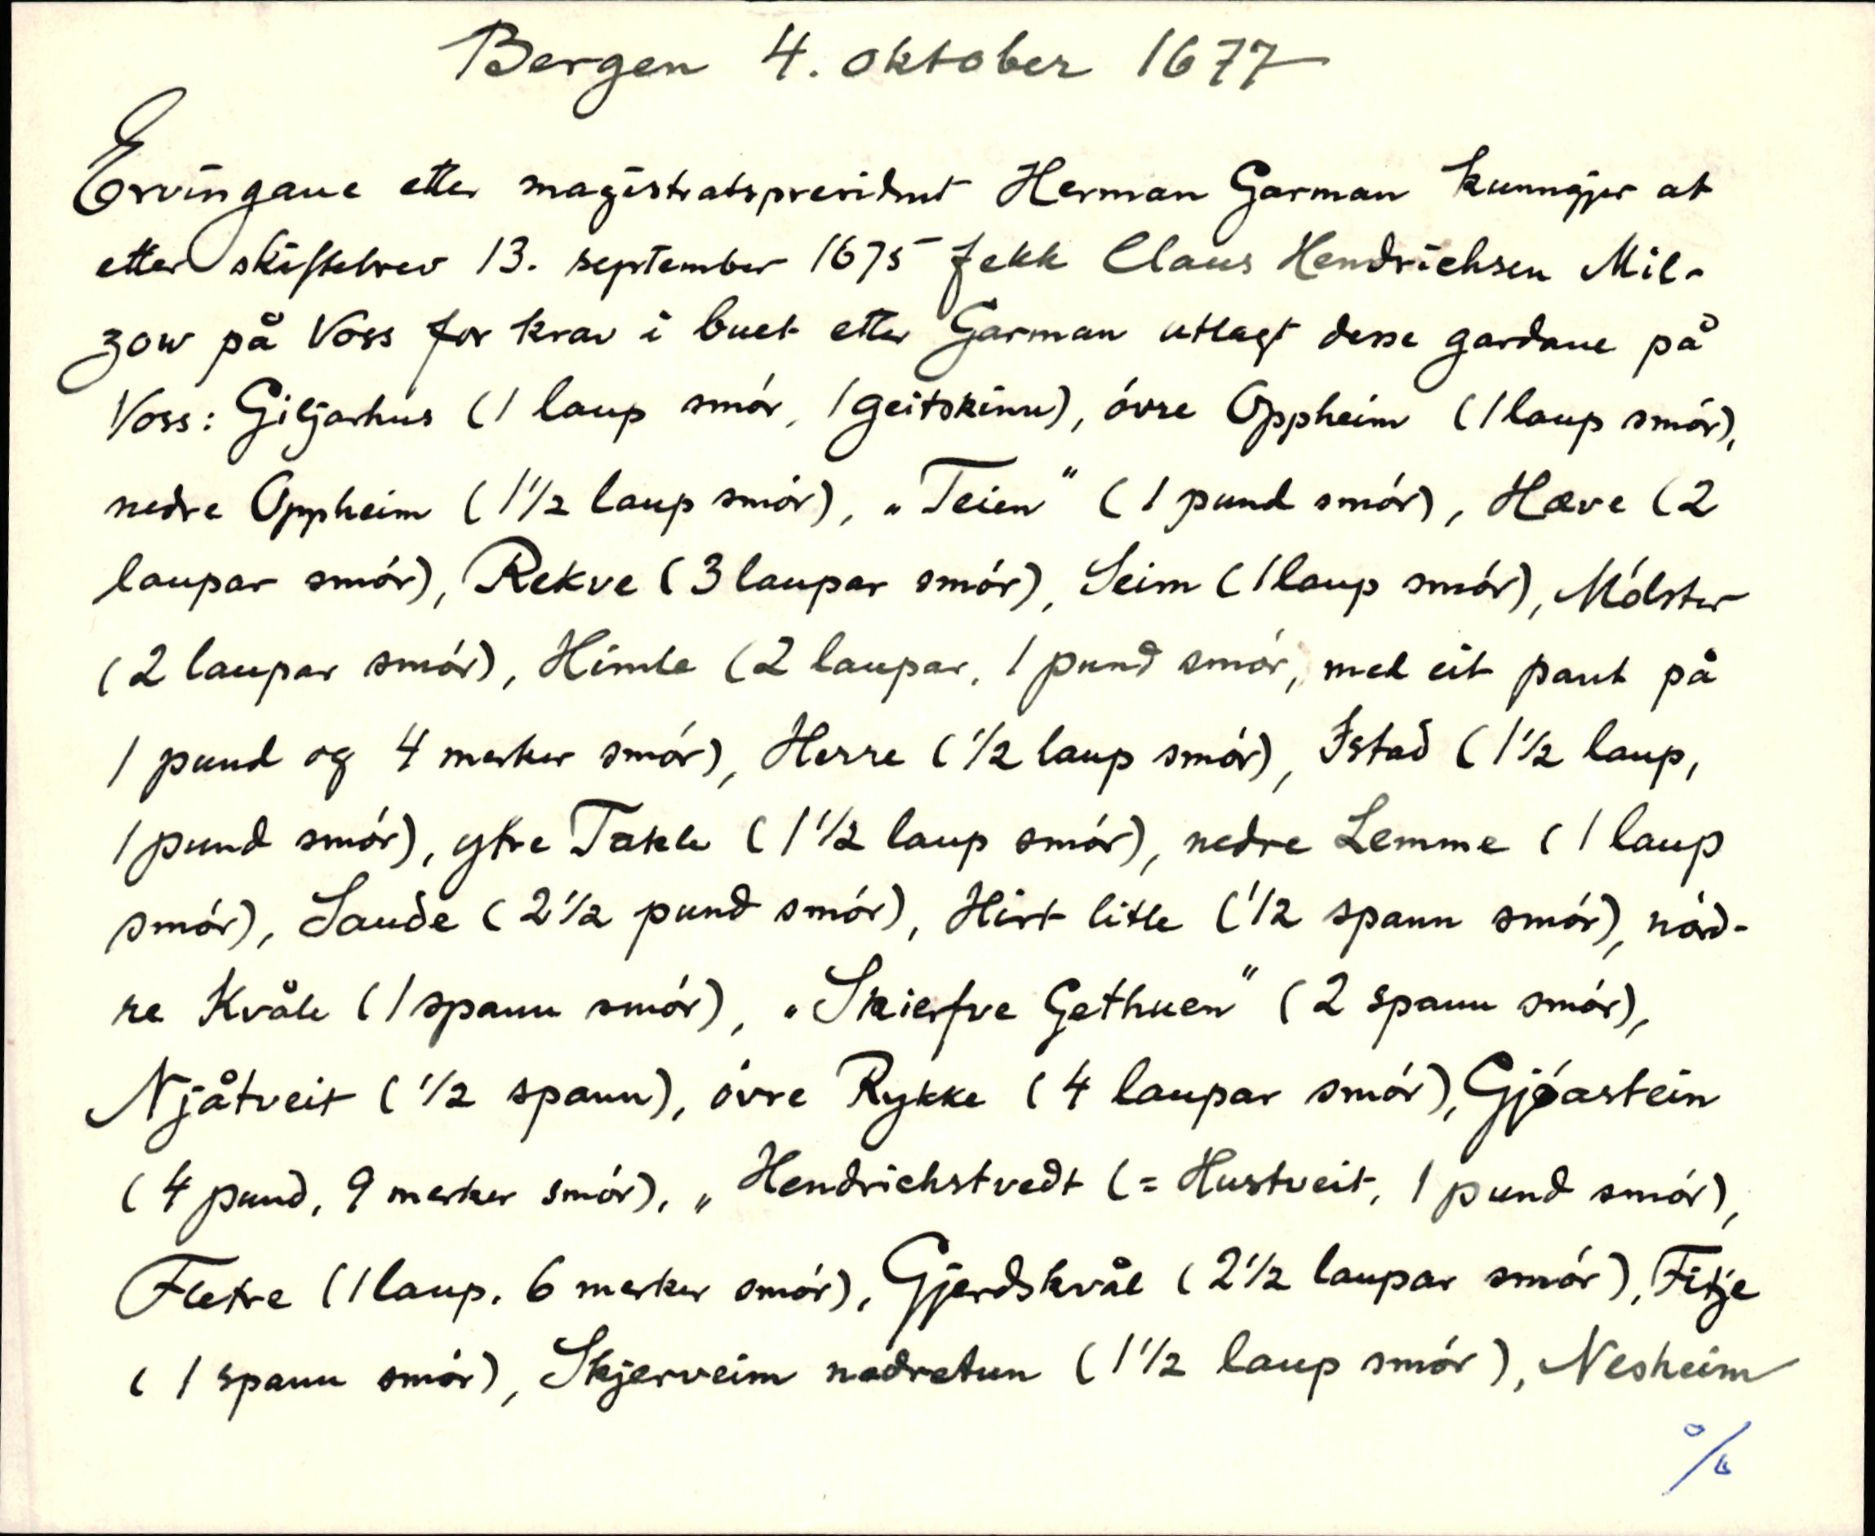 Bergen 4. oktober 1677
Ervingane etter magistratspresident Herman Garman kunngjer at
etter skiftebrev 13. september 1675 fekk Claus Hendrichsen Mil-
zow på Voss for krav i buet etter Garman utlagt desse gardane på
Voss: Giljarhus (1 laup smór, 1 geitskinn), óvre Oppheim (1 laup smór),
nedre Oppheim (1½ laup smór), „Teien" (1 pund smór), Hæve (2
laupar smór), Rekve (3 laupar smór), Seim (1 laup smór), Mólster
(2 laupar smór), Himle (2 laupar, 1 pund smór, med eit pant på
1 pund og 4 merker smór), Herre (½ laup smór), Istad (1½ laup,
1 pund smór), ytre Takle (1½ laup smór), nedre Lemme (1 laup
smór), Saude (2½ pund smór), Hirt litle (½ spann smór), nórd-
re Kvåle (1 spann smór), „Skierfve Gethuen" (2 spann smór),
Njåtveit (½ spann), óvre Rykke (4 laupar smór), Gjóastein
(4 pund, 9 merker smór), „Hendrichstvedt (= Hustveit, 1 pund smór),
Fletre (1 laup, 6 merker smór), Gjerdskvål (2½ laupar smór), Fitje
(1 spann smór), Skjerveim nedretun (1½ laup smór), Nesheim